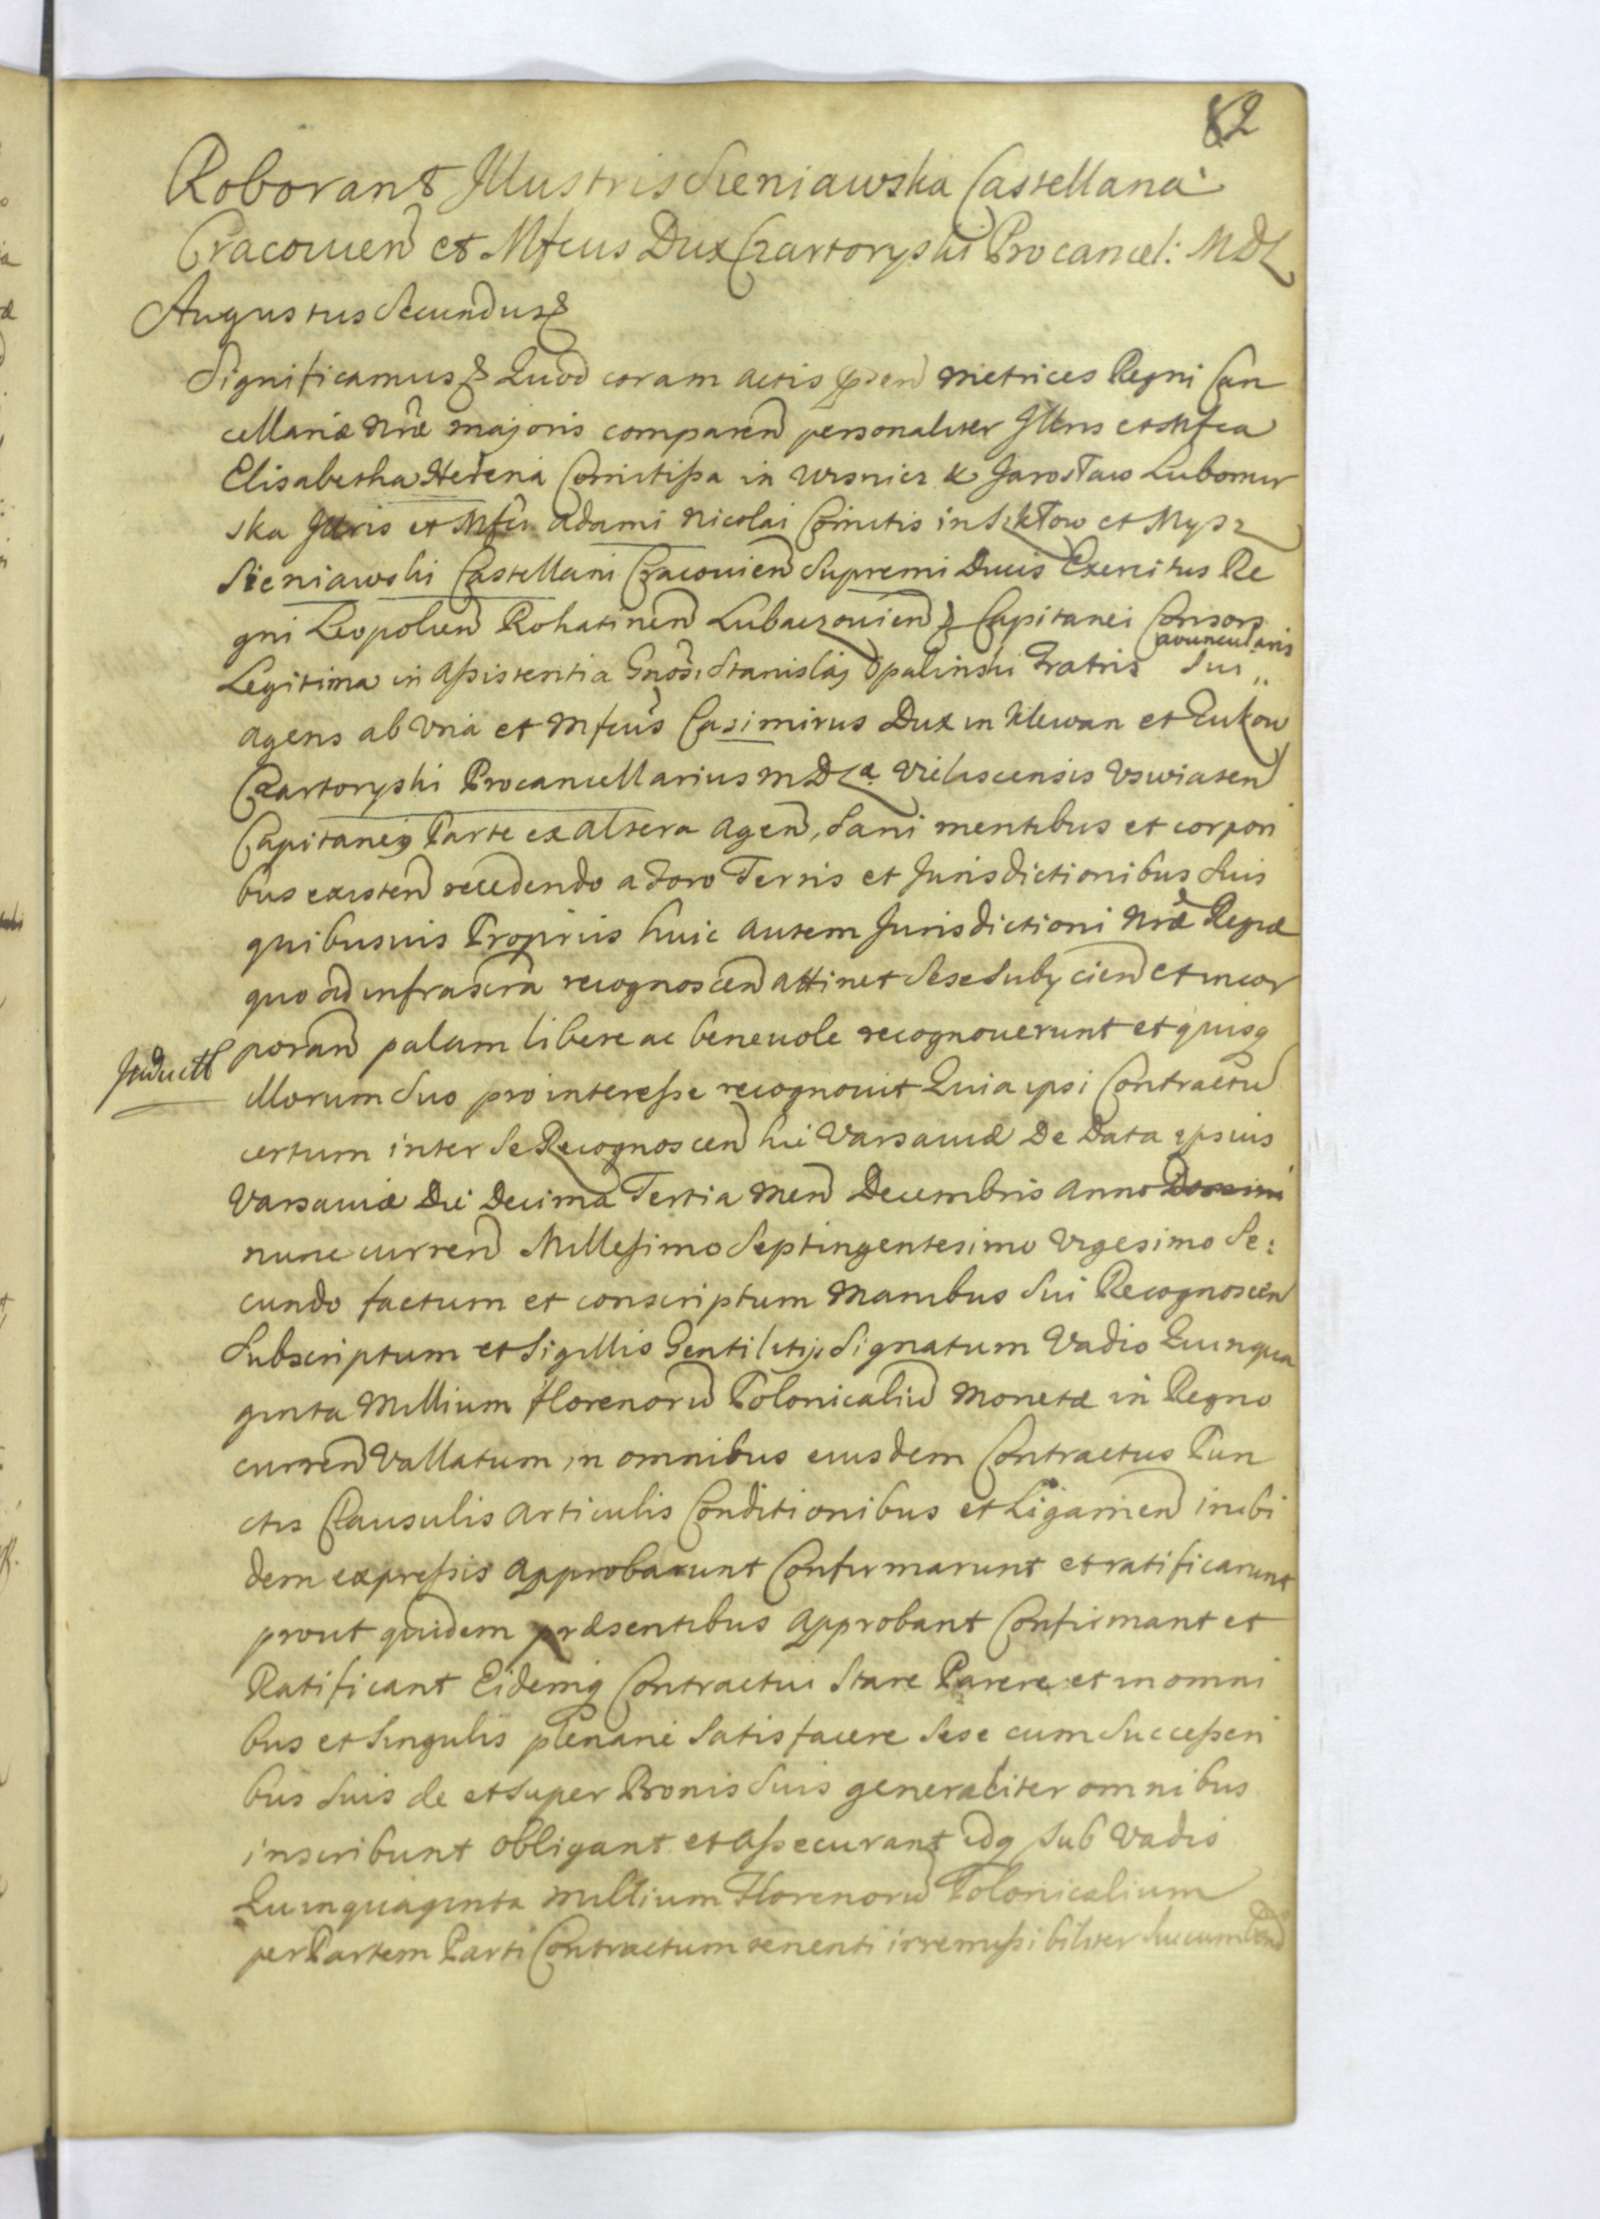 82
Roborant Illustris Sieniawska Castellana
Cracovien et Mfcus Dux Czartoryski Procancel: MDL
Augustus Secundus
Significamus Quod coram actis pnden Metrices Regni Can
cellariæ Nræ majoris comparen personaliter Illtris et Mfca
Elisabetha Helena Comitissa in Wisnicz & Jarosław Lubomir
ska Illtris et Mfci Adami Nicolai Comitis in Szkłow et Mysz
Sieniawski Castellani Cracovien Supremi Ducis Exercitus Re
gni Leopolien Rohatinen Lubaczovien Capitanei Consors
avuncularis
Legitima in assistentia Gnosi Stanislaj Opalinski Fratris Sui
agens ab Vna et Mfcus Casimirus Dux in Klewan et Zukow
Czartoryski Procancellarius MDLa. Vieliscensis Vswiaten
Capitaneg Parte ex altera agen, Sani mentibus et corpori
bus existen recedendo a Foro Terris et Jurisdictionibus Suis
quibusvis Proprijs huic autem Jurisdictioni Nræ Regiæ
quo ad infrascra recognoscen attinet Sese Subijcien et incor
Inductt
poran palam libere ac benevole recognouerunt et quisq
illorum Suo pro interesse recognouit Quia ipsi Contractu
certum inter Se Recognoscen hic Varsaviæ De Data ipsius
Varsaviæ Die Decima Tertia Men Decembris Anno Domini
nunc curren Millesimo Septingentesimo Vigesimo Se:
cundo factum et conscriptum Manibus Sui Recognoscen
Subscriptum et Sigillis Gentilitijs Signatum Vadio Quinqua
ginta Millium florenorū Polonicaliū Monetæ in Regno
curren Vallatum in omnibus eiusdem Contractus Pun
ctis Clausulis Articulis Conditionibus et Ligamen inibi
dem expressis Approbarunt Confirmarunt et ratificarunt
prout quidem præsentibus Approbant Confirmant et
Ratificant Eidemq Contractui Stare Parere et in omni
bus et Singulis plenarie Satisfacere Sese cum Successori
bus Suis de et super Bonis Suis generaliter omnibus
inscribunt Obligant et Assecurant idq Sub Vadio
Quinquaginta Millium Florenorū Polonicalium
per Partem Parti Contractum tenenti irremissibiliter Succumben